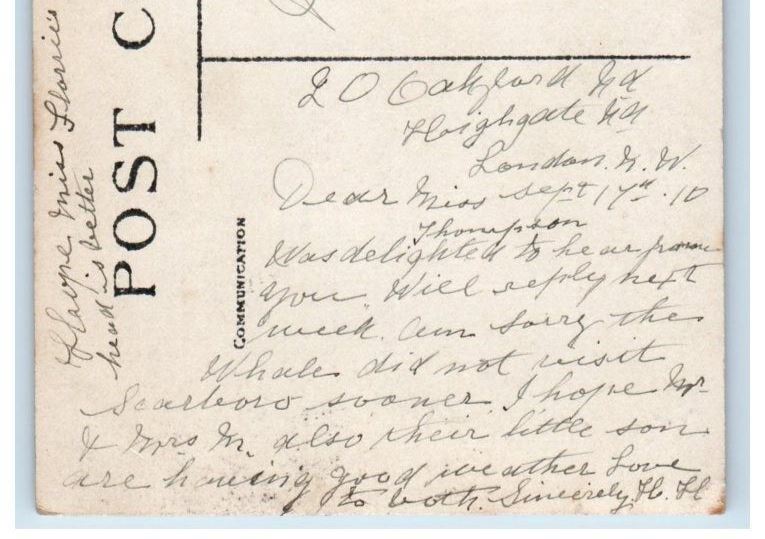 20 Oakford Rd
Highgate Rd
London. N. W.
Sept 17th. 10
Dear Miss
Thompson
Was delighted to hear from
you. Will reply next
week. Am sorry the
Whale did not visit
Scarboro sooner. I hope Mr
& Mrs M. also their little son
are having good weather Love
to both. Sincerely, H. H
COMMUNICATION
POST C
Hope Miss Florrie's
head is better